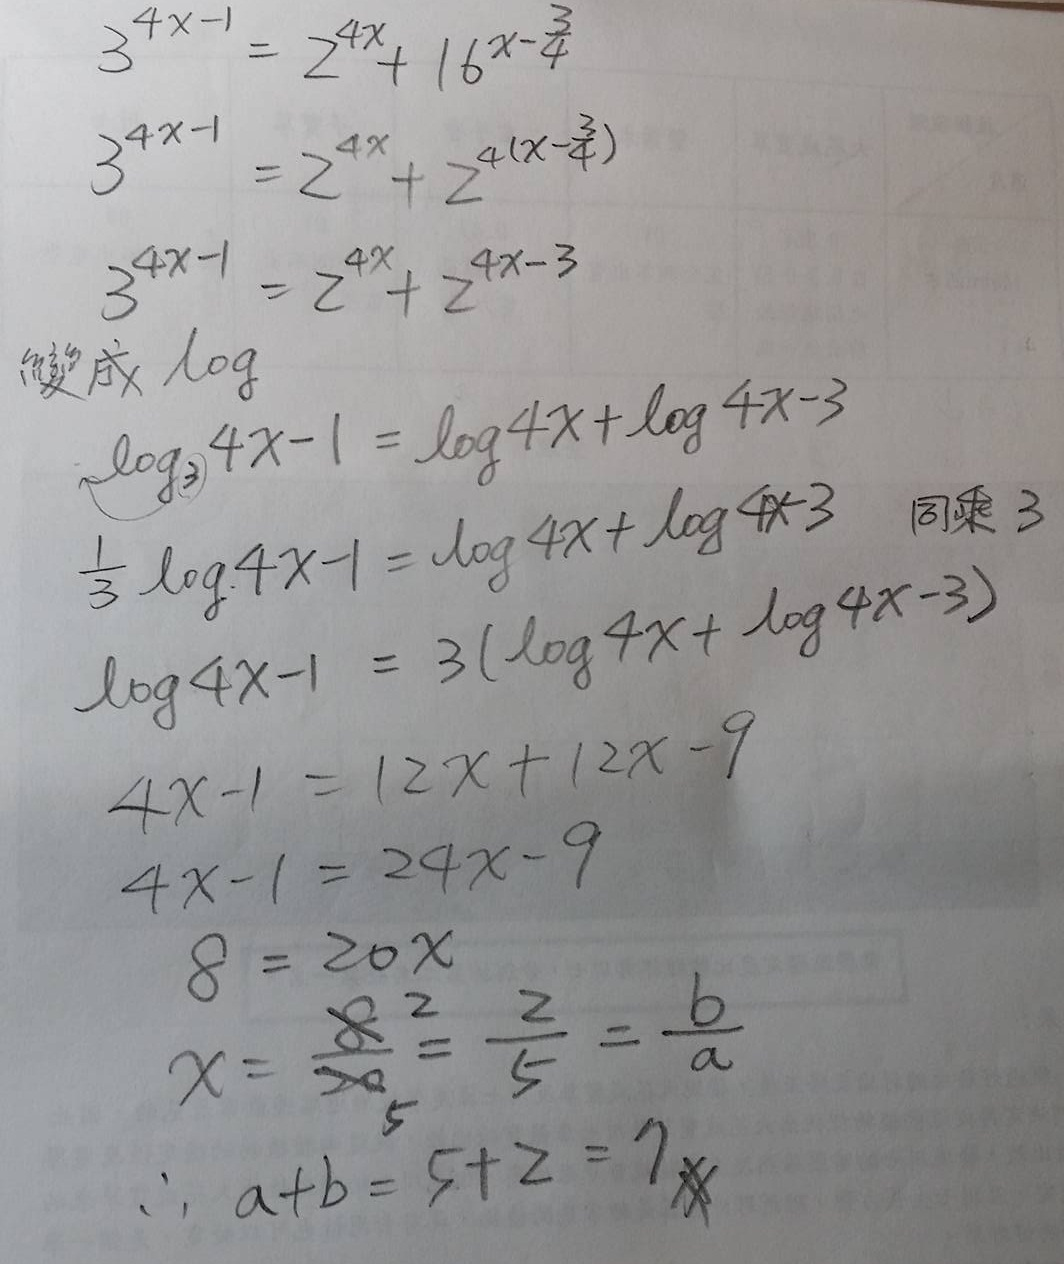 3^{4x-1} = 2^{4x} + 16^{x-\frac{3}{4}}
3^{4x-1} = 2^{4x} + 2^{4(x-\frac{3}{4})}
3^{4x-1} = 2^{4x} + 2^{4x-3}
變成 log
log_3 4x-1 = log4x + log4x-3
\frac{1}{3} log4x-1 = log4x + log4x-3 同乘3
log4x-1 = 3(log4x + log4x-3)
4x-1 = 12x + 12x-9
4x-1 = 24x-9
8 = 20x
x = \frac{8}{20} \frac{2}{5} = \frac{2}{5} = \frac{b}{a}
∴ a+b = 5+2 = 7